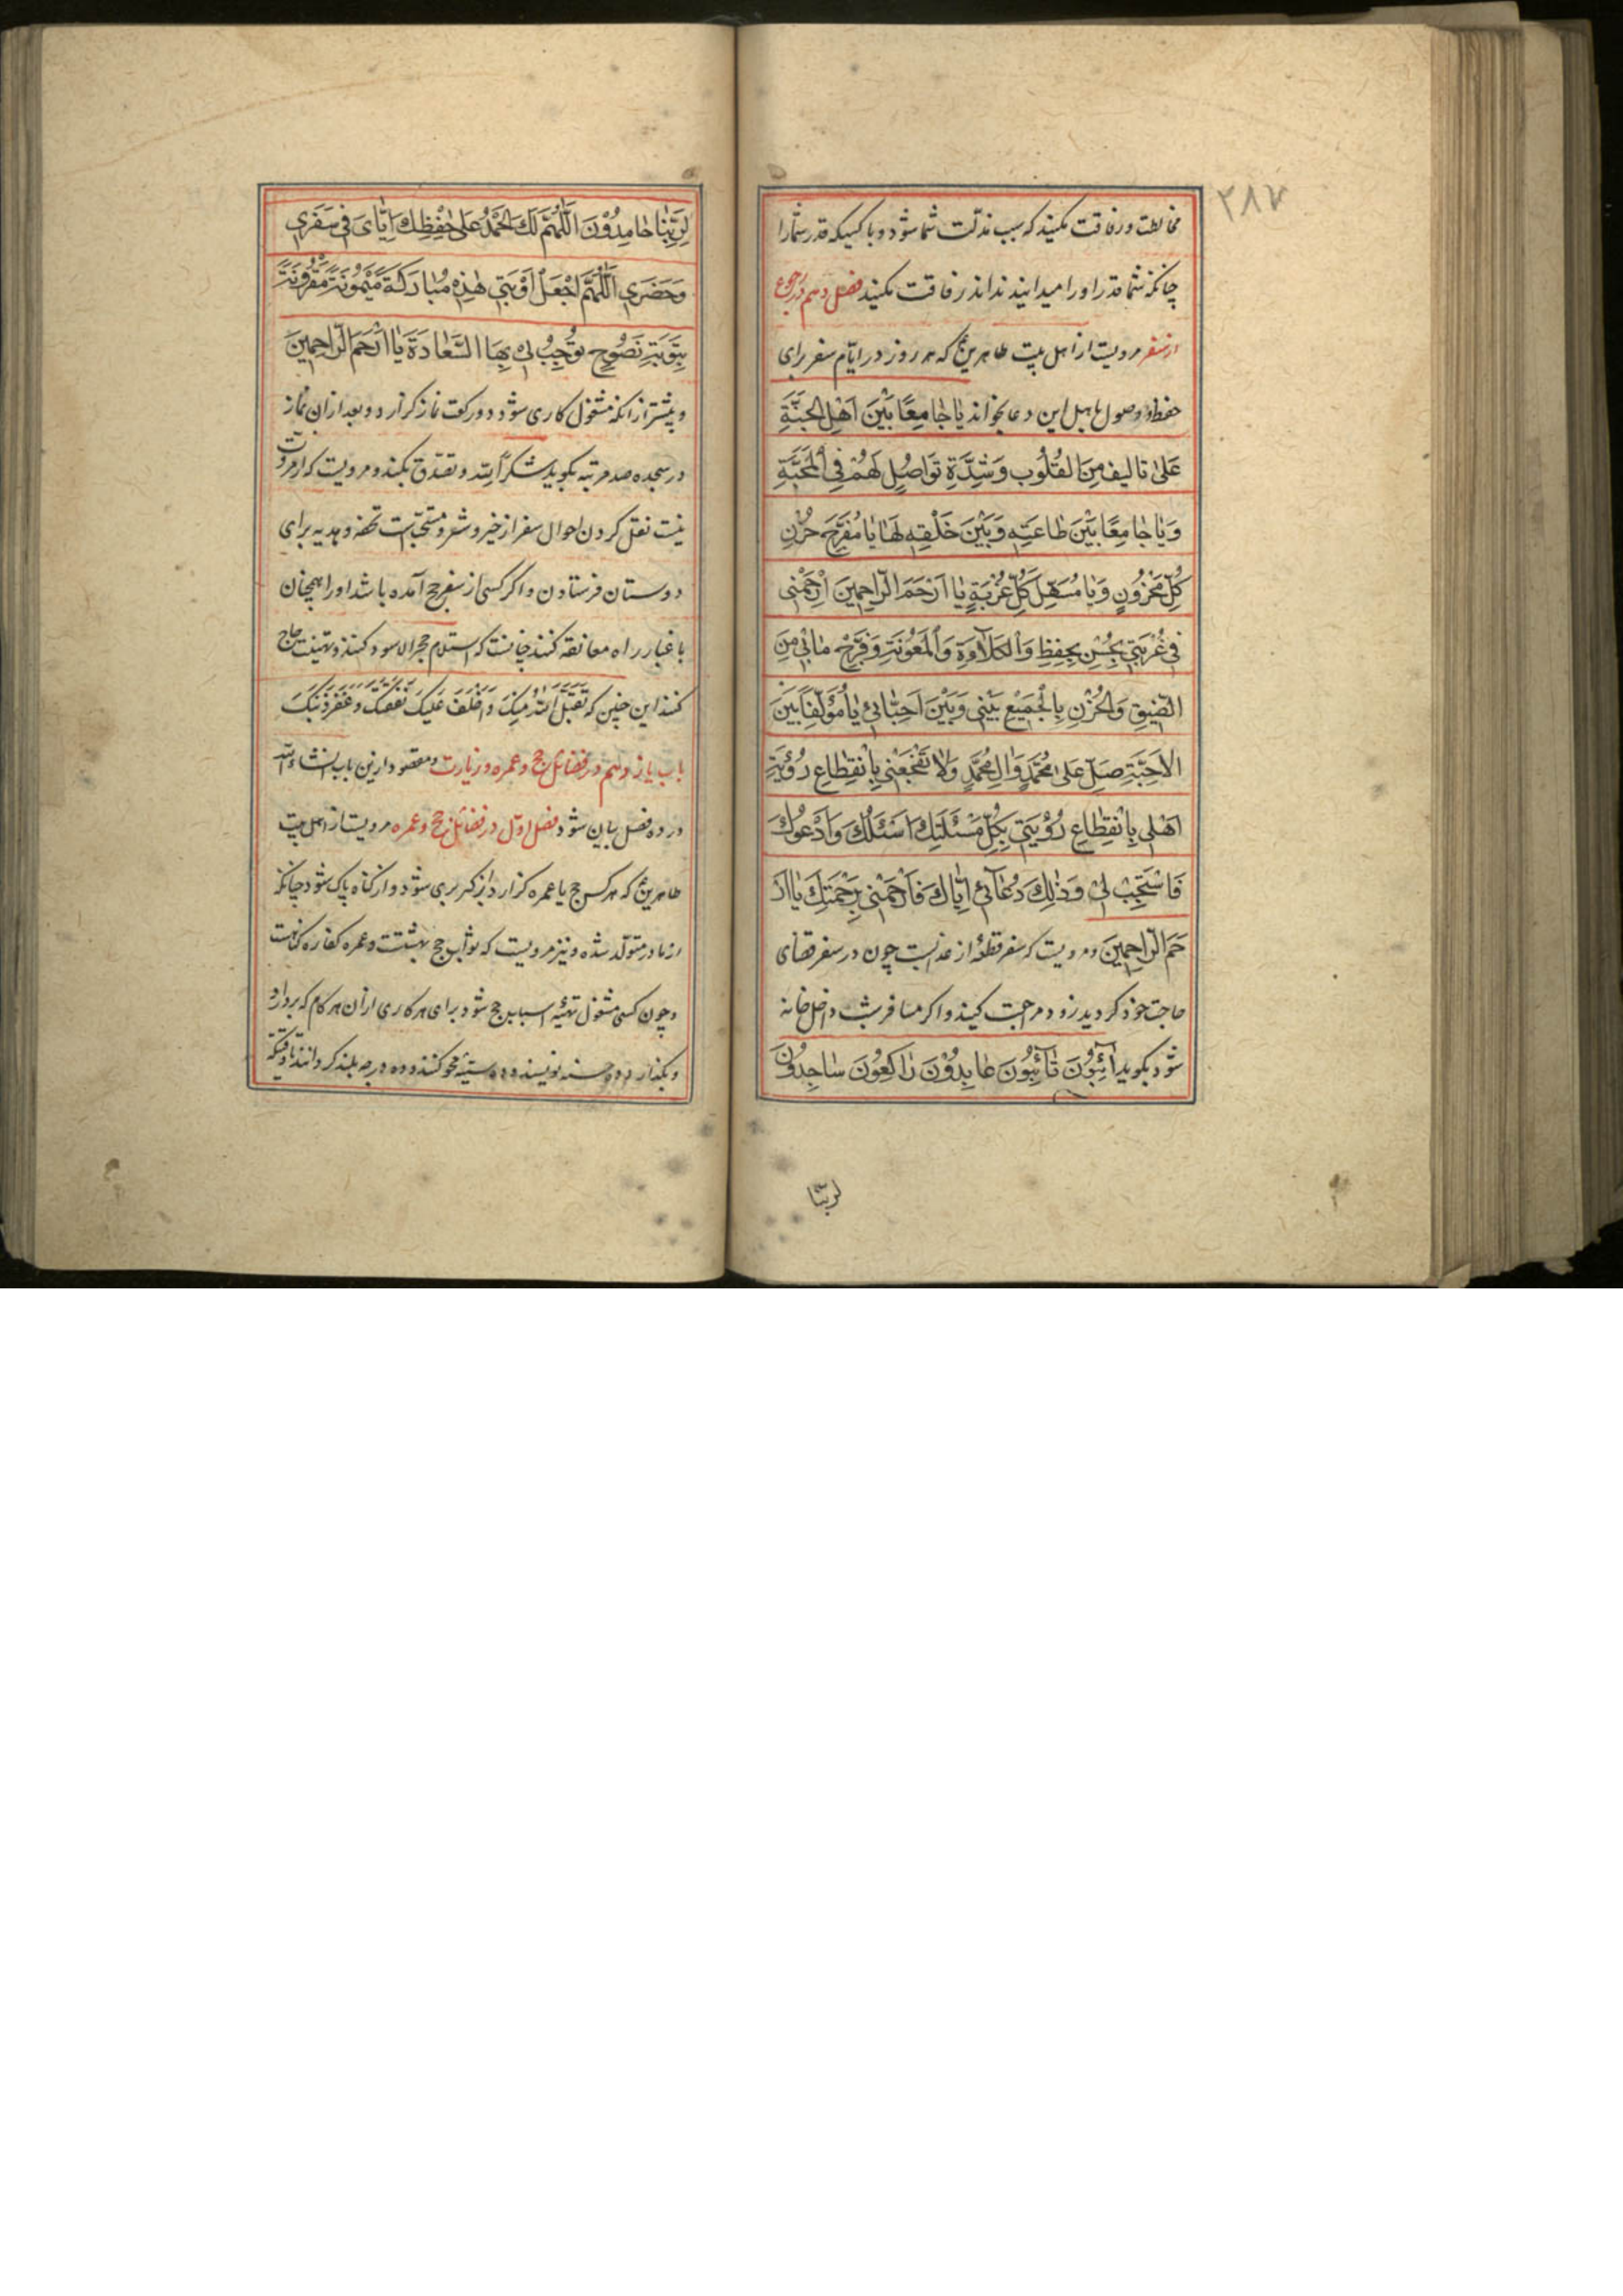 ۲۸۷
مخالطت و رفاقت مکنید که سبب مذلّت شما شود و با کسیکه قدر شما را
چنانکه شما قدر او را میدانید نداند رفاقت مکنید فصل دهم در رجوع
از سفر مرویست از اهل بیت طاهرین ع که هر روز در ایّام سفر برای
حفظ و وصول باهل این دعا بخواند یَا جَامِعًا بَیْنَ اَهْلِ الْجَنَّةِ
عَلیٰ تَالیفٍ مِنَ الْقُلُوبِ وَشِدَّةِ تَوَاصُلٍ لَهُمْ فِی الْمَحَبَّةِ
وَیَا جَامِعًا بَیْنَ طَاعَتِهِ وَبَیْنَ خَلْقِهِ لَهَا یَا مُفَرِّجَ حُزْنِ
کُلِّ مَحْزُونٍ وَیَا مُسَهِّلَ کُلِّ غُرْبَةٍ یَا اَرْحَمَ الرَّاحِمِینَ اِرْحَمْنِی
فِی غُرْبَتِی بِحُسْنِ الحِفْظِ وَالْکَلَاوَةِ وَالْمَعُونَةِ وَفَرِّجْ مَا بِی مِنَ
الضِّیقِ وَالْحُزْنِ بِالْجَمِیْعِ بَیْنِی وَبَیْنَ اَحِبَّائِی یَا مُؤَلِّفًا بَیْنَ
الْاَحِبَّةِ صَلِّ عَلیٰ مُحَمَّدٍ وَاٰلِ مُحَمَّدٍ وَلَا تَفْجَعْنِی بِاِنْقِطَاعِ رُؤْیَةِ
اَهْلِی بِاِنْقِطَاعِ رُؤْیَتِی بِکُلِّ مَسْئَلَتِكَ اَسْئَلُكَ وَاَدْعُوكَ
فَاسْتَجِبْ لِی وَذٰلِكَ دُعَائِی اِیَّاكَ فَارْحَمْنِی بِرَحْمَتِكَ یَا اَرْ
حَمَ الرَّاحِمِینَ و مرویست که سفر قطعهٔ از عذابست چون در سفر قضای
حاجت خود کردید زود مراجعت کنید و اکر مسافر بشب داخل خانه
شود بکوید اٰئِبُونَ تَائِبُونَ عَابِدُوْنَ رَاکِعُونَ سَاجِدُونَ
لربّنا
لِرَبِّنَا حَامِدُوْنَ اَللّٰهُمَّ لَكَ الْحَمْدُ عَلیٰ حِفْظِكَ اِیَّایَ فِی سَفَرِی
وَحَضَرِی اَللّٰهُمَّ اجْعَلْ اَوْبَتِی هٰذِهِ مُبَارَکَةً مَیْمُونَةً مَقْرُونَةً
بِتَوْبَةٍ نَصُوحٍ تُوجِبُ لِی بِهَا السَّعَادَةَ یَا اَرْحَمَ الرَّاحِمِینَ
و پیشتر از انکه مشغول کاری شود دو رکعت نماز کزارد و بعد از ان نماز
در سجده صد مرتبه بکوید شکراً لله و تصدّق بکند و مرویست که از مروّت
نیست نقل کردن احوال سفر از خیر و شر و مستحبّ است تحفه و هدیه برای
دوستان فرستادن و اکر کسی از سفر حج آمده باشد او را همچنان
با غبار راه معانقه کنند چنانست که استلام حجر الاسود کنند و تهنیت حاج
کنند این چنین که تَقَبَّلَ اللّٰهُ مِنْكَ وَاَخْلَفَ عَلَیْكَ نَفَقَتَكَ وَغَفَرَ ذَنْبَكَ
باب یازدهم در فضائل حج و عمره و زیارت و مقصود ازین باب انشاءالله
در ده فصل بیان شود فصل اوّل در فضائل حج و عمره مرویست از اهل بیت
طاهرین ع که هر کس حج یا عمره کزارد از کبر بری شود و از کناه پاک شود چنانکه
از مادر متولّد شده و نیز مرویست که ثواب حج بهشتست و عمره کفاره کناهست
و چون کسی مشغول تهیّهٔ اسباب حج شود برای هر کاری از آن هر کام که بردارد
و بکذارد ده حسنه نویسند و ده سیّئه محو کنند و ده درجه بلند کردانند تا وقتیکه